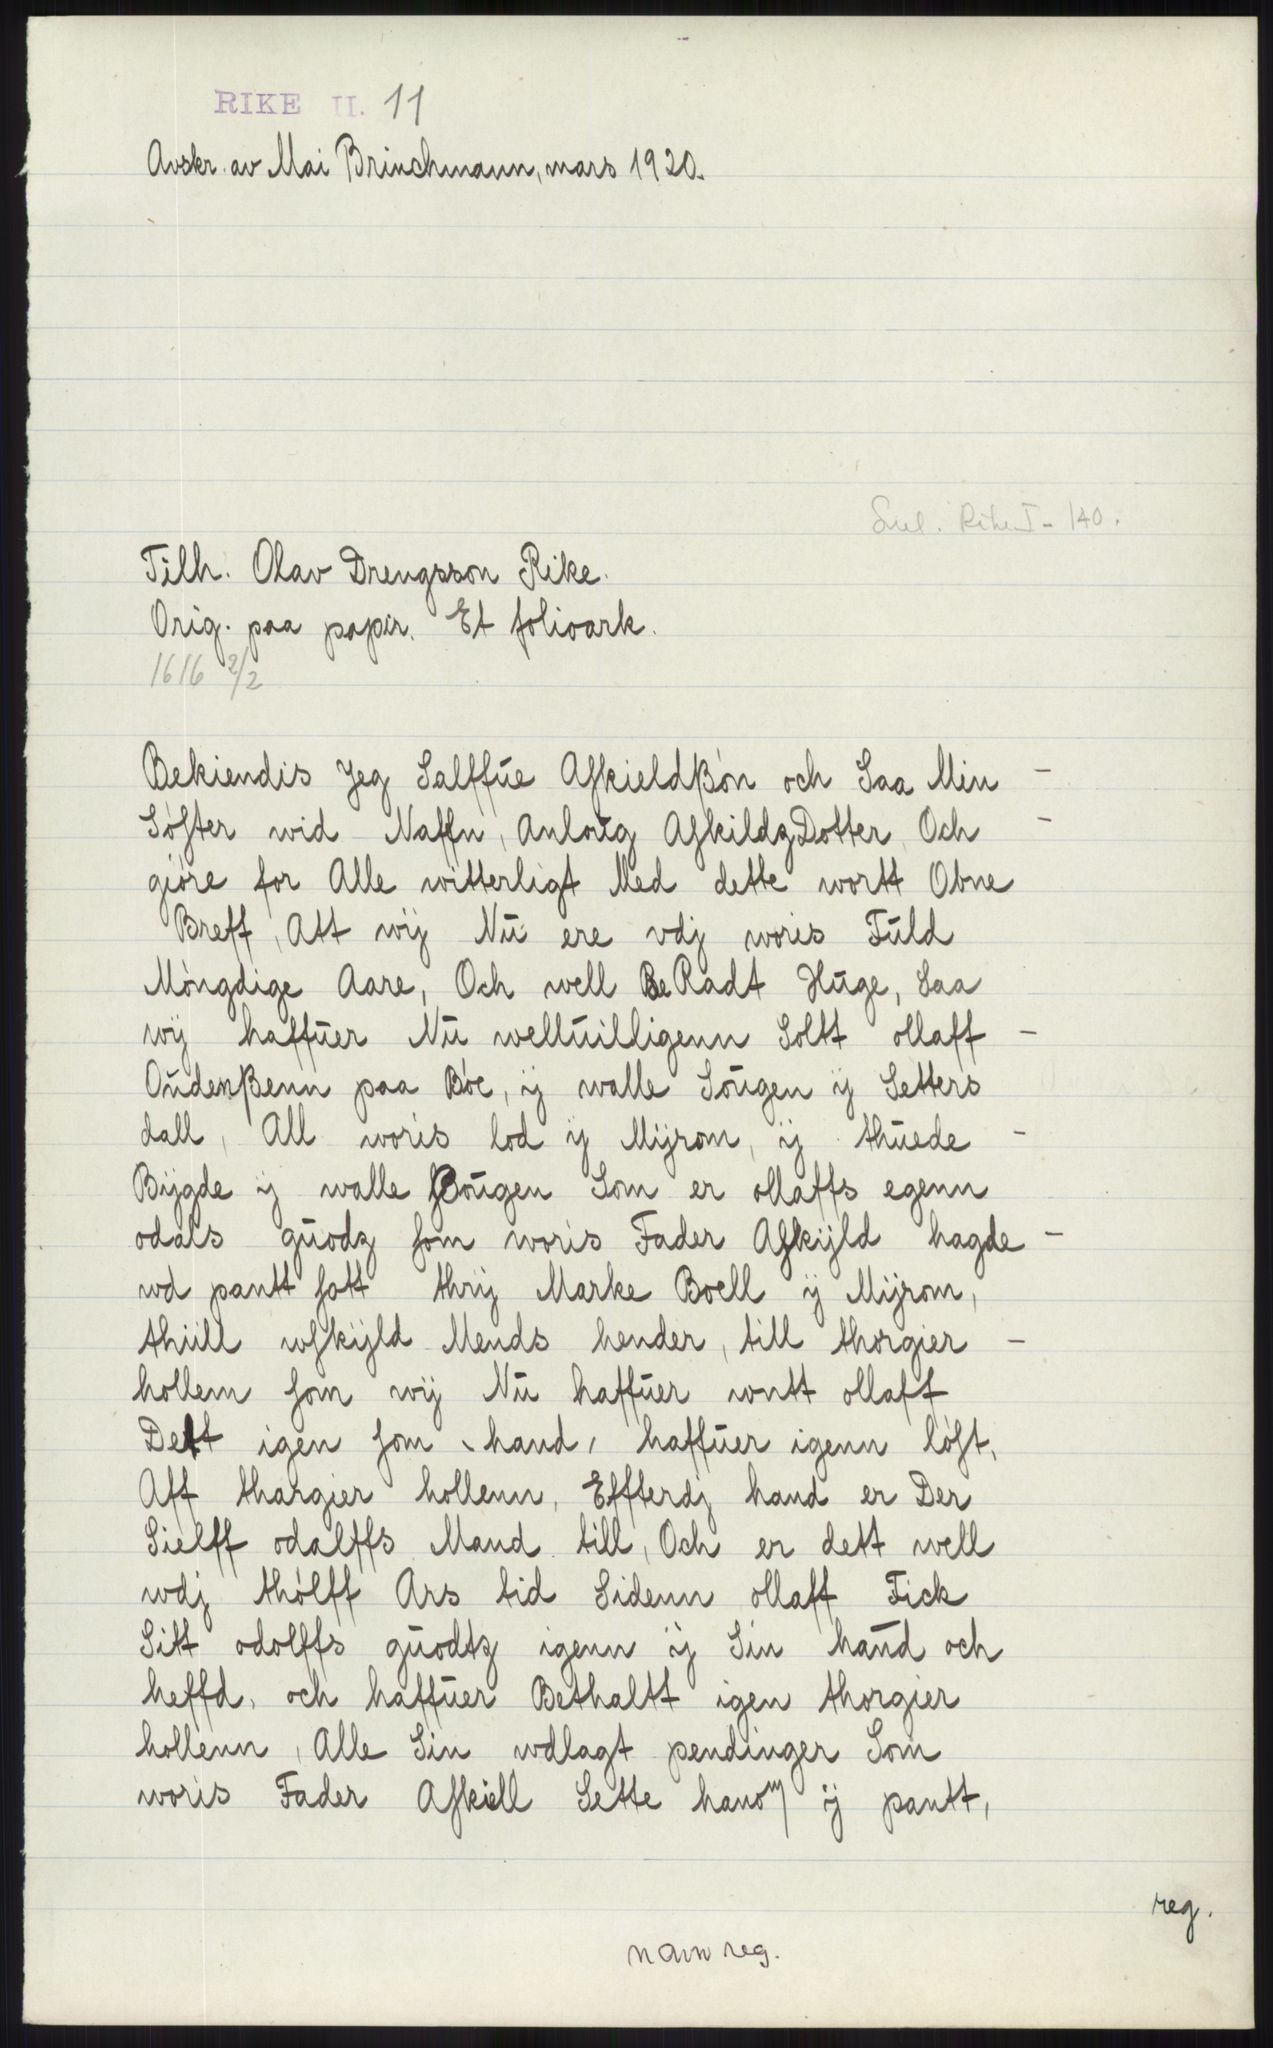 RIKE II. 11
Avskr. av Mai Brinchmann, mars 1920.
Rike I - 140.
Tilh. Olav Drengsson Rike.
Orig. paa papir. Et folioark.
1616 2/2
Bekiendis Jeg Salffue Aſkieldßön och Saa Min -
Söſter wid Naffn, Anloug AſkildzDotter, Och -
giöre for Alle witterligt Med dette wortt Obne
Breff, Att wij Nu ere vdj woris Fuld
Möngdige Aare, Och well BeRadt Huge, Saa
wij haffuer Nu welluilligenn Soltt ollaff -
Oudenßenn paa Böe, ij walle Sougen ij Setters
dall, All woris lod ij Mijrom, ij thuede -
Bijgde ij walle Sougen Som er ollaffs egenn
odals guodz ſom woris Fader Aſkijld hagde -
wd pantt ſatt thrij Marke Boell ij Mijrom,
thiill wſkijld Mends hender, till thorgier -
hollem ſom wij Nu haffuer wntt ollaff
Dett igen ſom hand, haffuer igenn löſt,
Aff thargier hollenn, Effterdj hand er Der
Sielff odalffs Mand till, Och er dett well
wdj thölff Ars tid Sidenn ollaff Fick
Sitt odolffs guodtz igenn ij Sin hand och
heffd, och haffuer Bethaltt igen thorgier
hollenn, Alle Sin wdlagt pendinger Som
woris Fader Aſkiell Sette hanom ij pantt,
reg.
navnreg.